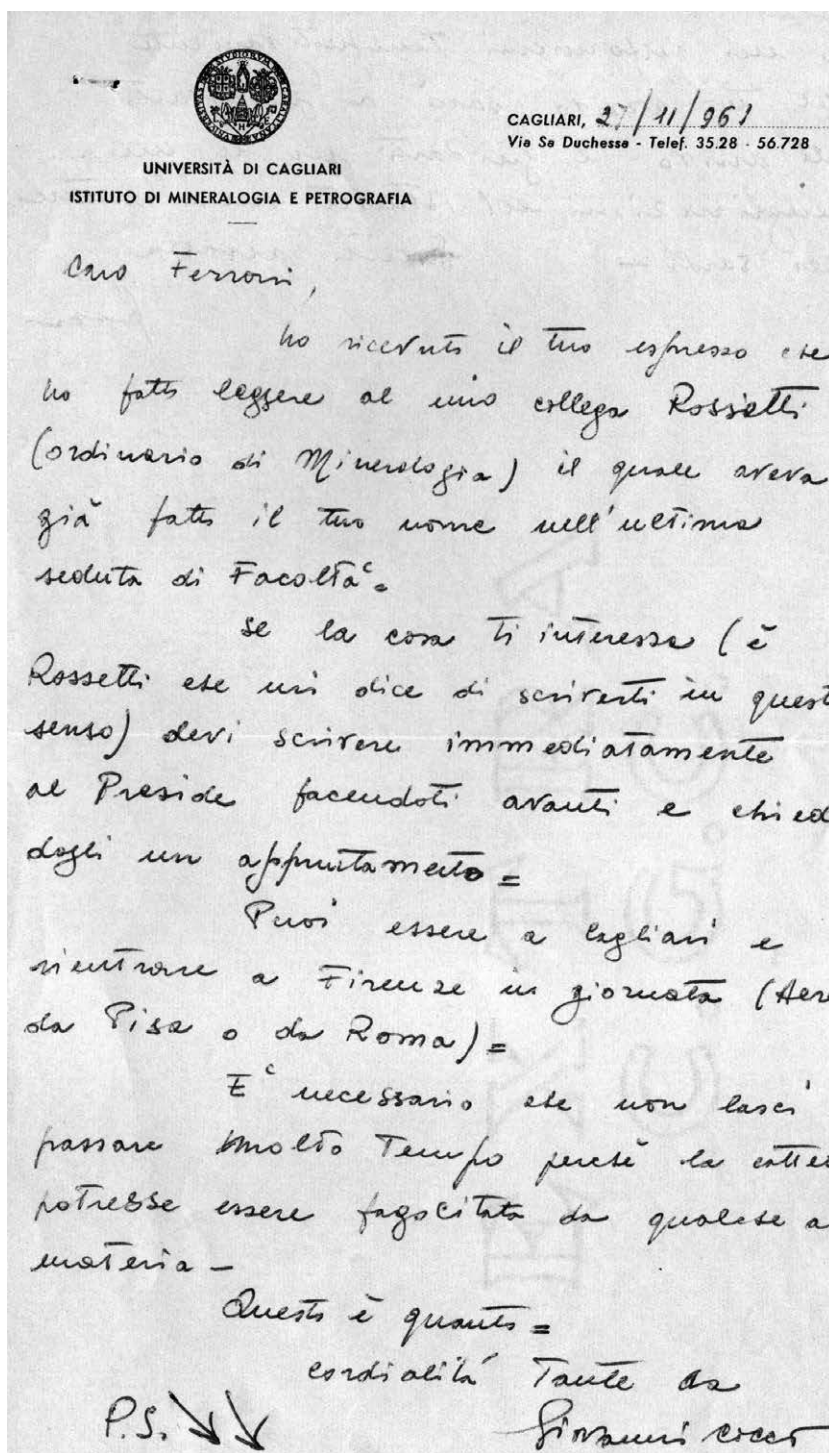 CAGLIARI, 27/11/961
Via Sa Duchessa - Telef. 35.28 - 56.728
UNIVERSITÀ DI CAGLIARI
ISTITUTO DI MINERALOGIA E PETROGRAFIA
Caro Ferroni,
ho ricevuto il tuo espresso che
ho fatto leggere al mio collega Rossetti
(ordinario di Mineralogia) il quale aveva
già fatto il tuo nome nell'ultima
seduta di Facoltà =
Se la cosa ti interessa (è
Rossetti che mi dice di scriverti in quest
senso) devi scrivere immediatamente
al Preside facendoti avanti e chied
dogli un appuntamento =
Puoi essere a Cagliari e
rientrare a Firenze in giornata (Aere
da Pisa o da Roma) =
E' necessario che non lasci
passare molto tempo perchè la catte
potrebbe essere fagocitata da qualche a
materia -
Questo è quanto =
cordialità Tante da
Giovanni Cocco
P.S.